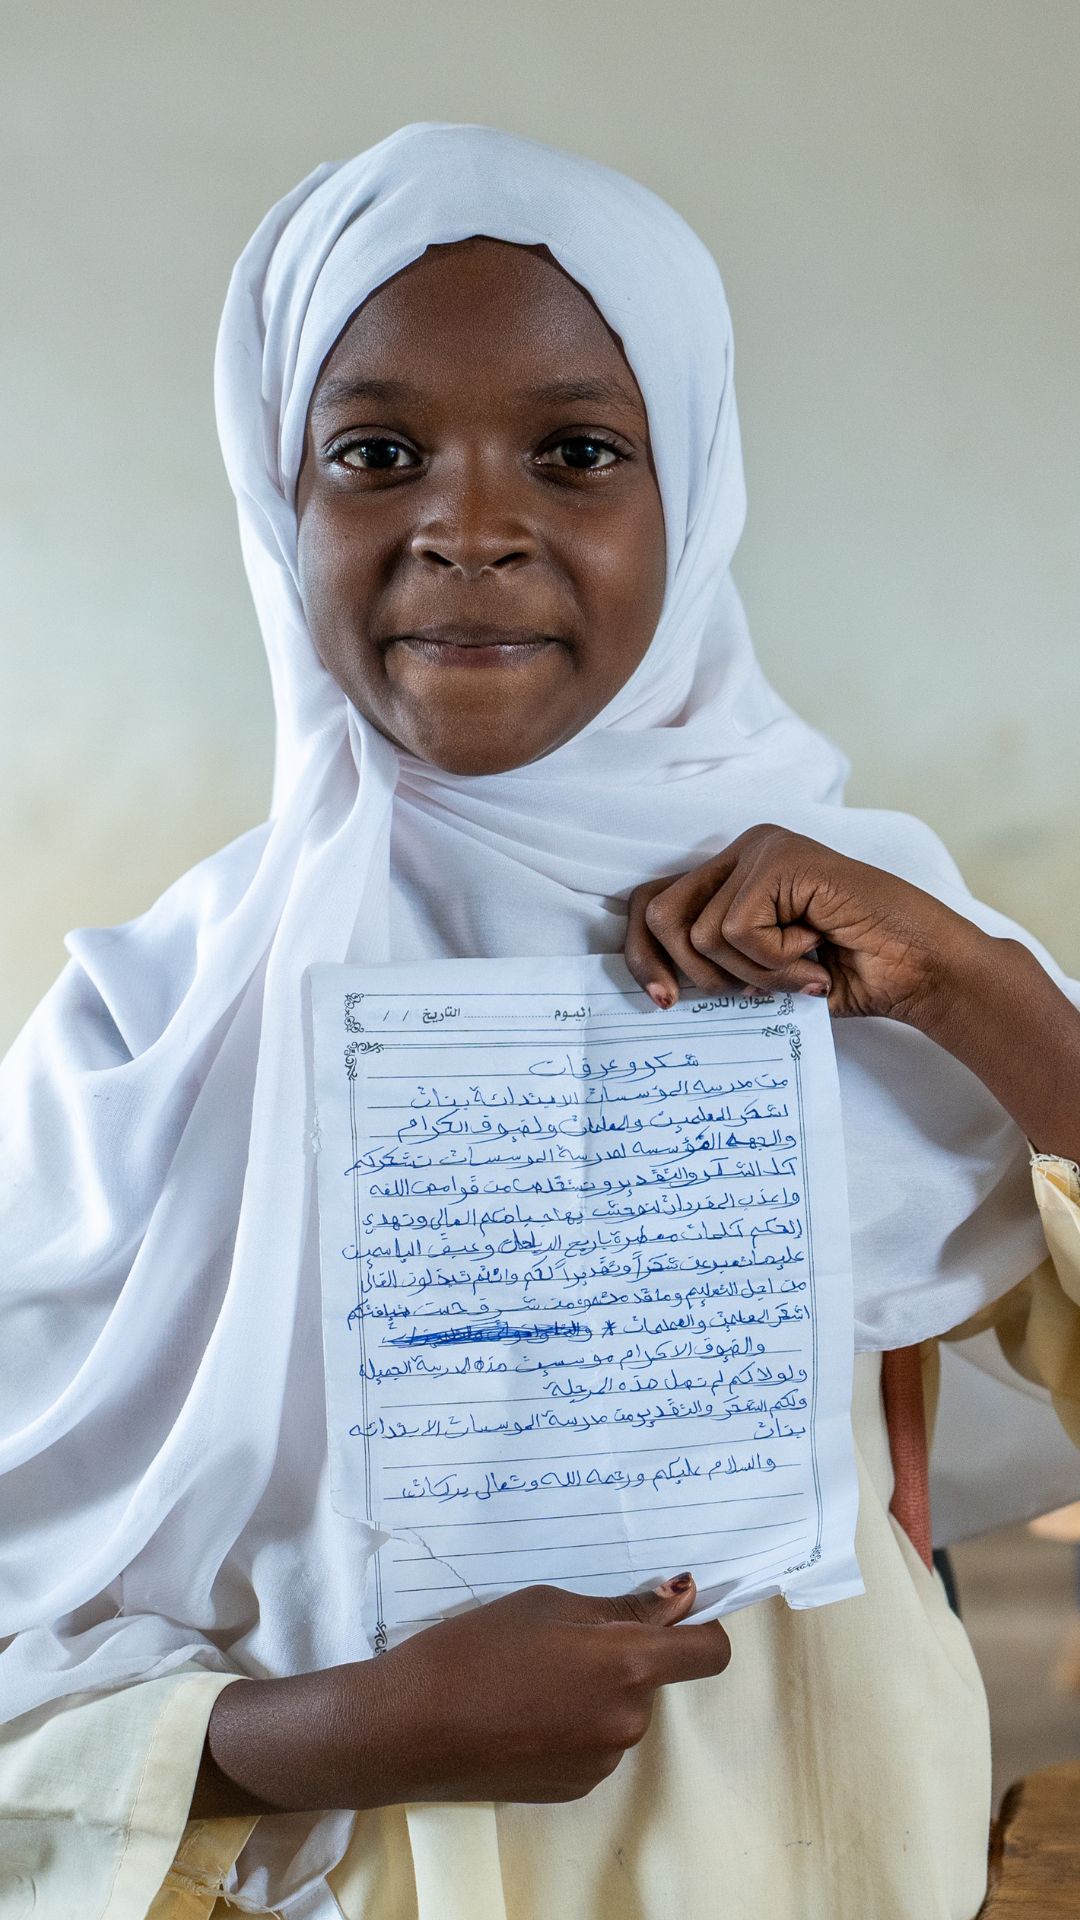 عنوان الدرس اليوم التاريخ / /
شكر وعرفات
من مدرسه المؤسسات الابتدائة بنات
اشكر المعلمين والمعلمات ولضيوف الكرام
والجهه المؤسسه لمدرسة الموسسات تشكركم
كل الشكر والتقدير من قوامص اللغه
واعذب المفردات بها العالي وتهدي
إليكم كلمات معطرة باريج الرياحين وعبق الياسمين
عليها تعبير عن شكراً وتقديراً لكم وانتم تبذلون الغالي
من اجل التعليم وما قد من شرف حيت ضيافتكم
اشكر المعلمين والمعلمات *
والضيوف الاكرام موسسين هذه المدرسة الجميلة
ولولاكم لم تصل هذه المرحلة
ولكم الشكر والتقدير من مدرسة الموسسات الابتدائه
بنات
والسلام عليكم ورحمه الله وتعالى بركات